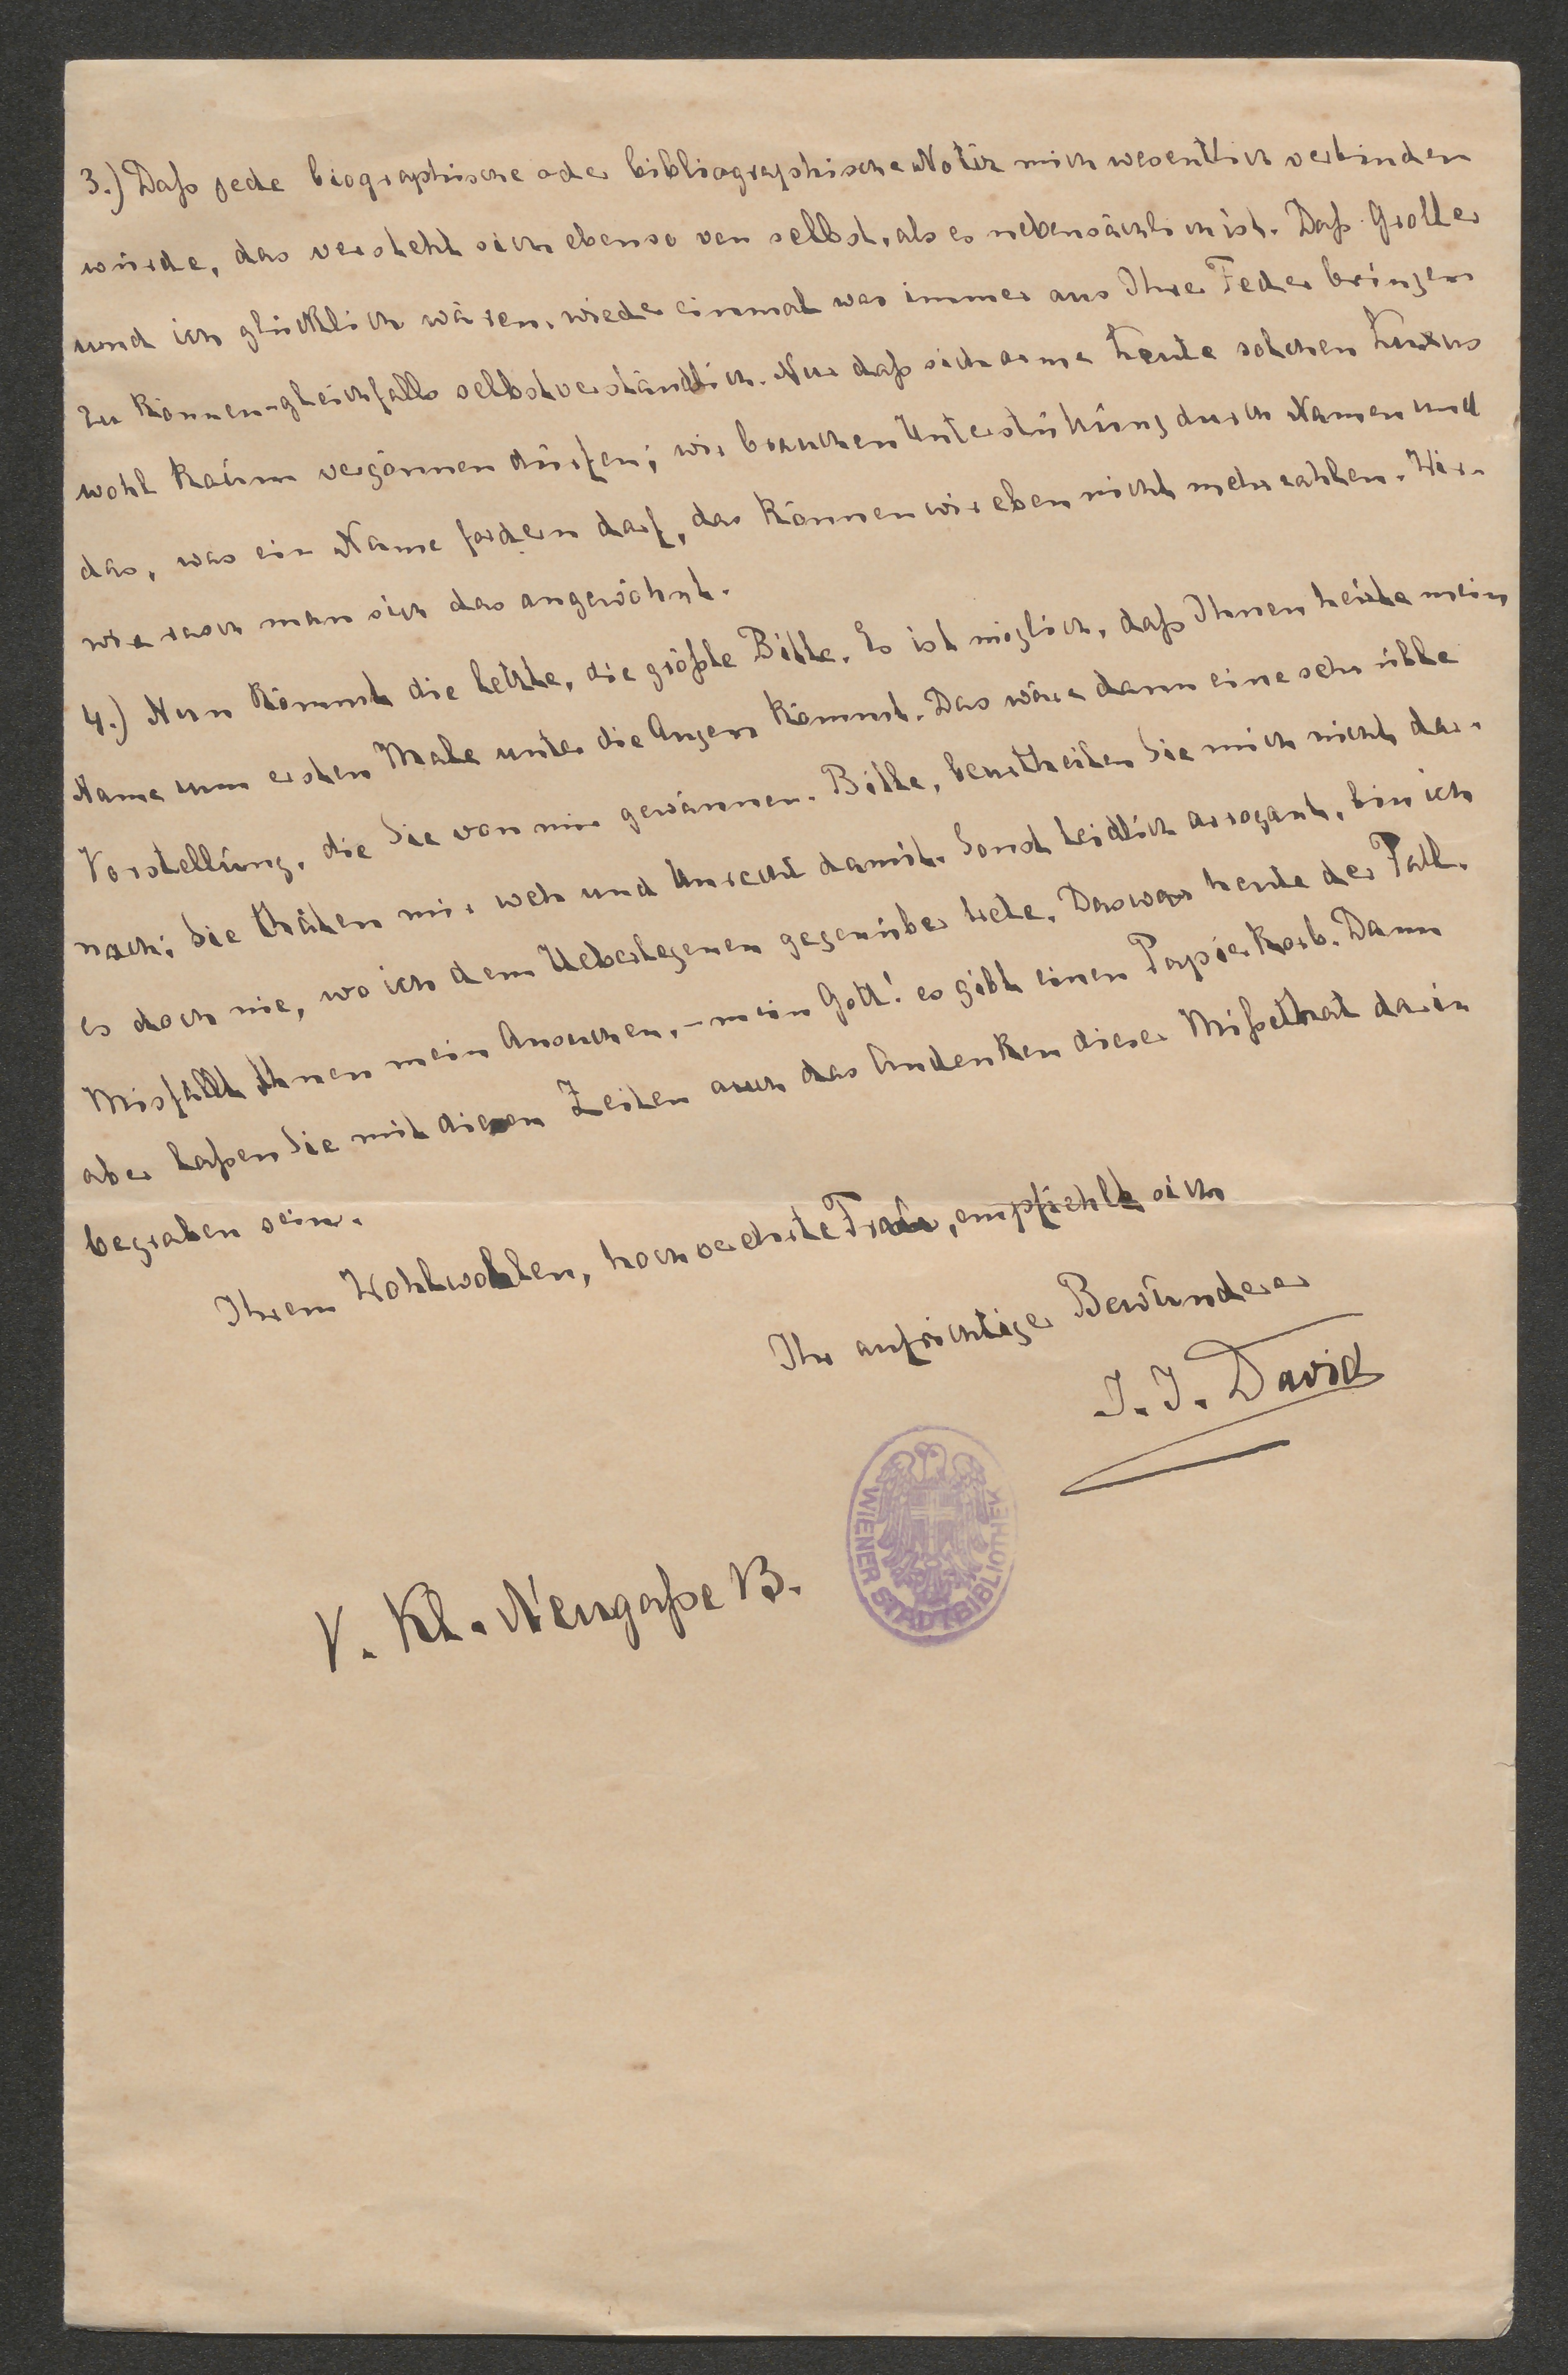 3.) Daß jede biographische oder bibliographische Notiz mich wesentlich verbinden
würde, das versteht sich ebenso von selbst, als es nebensächlich ist. Daß Groller
und ich glücklich wären, wieder einmal was immer aus Ihrer Feder bringen
zu können - gleichfalls selbstverständlich. Nur daß sich arme Leute solchen Luxus
wohl kaum vergönnen dürfen; wir brauchen Unterstützung durch Namen und
das, was ein Name fordern darf, das können wir eben nicht mehr zahlen. Wir -
wie rasch man sich das angewöhnt.
4.) Nun kömmt die letzte, die größte Bitte. Es ist möglich, daß Ihnen heute mein
Name zum ersten Male unter die Augen kömmt. Das wäre dann eine sehr üble
Vorstellung, die Sie von mir gewännen. Bitte, beurtheilen Sie mich nicht dar-
nach; Sie thäten mir weh und Unrecht damit. Sonst leidlich arrogant, bin ich
es doch nie, wo ich dem Ueberlegenen gegenüber trete. Das war heute der Fall.
Misfällt Ihnen mein Ansuchen, - mein Gott! es gibt einen Papierkorb. Dann
aber laßen Sie mit diesen Zeilen auch das Andenken dieser Mißethat darin
begraben sein.
Ihrem Wohlwollen, hochverehrte Frau, empfiehlt sich
Ihr aufrichtiger Bewunderer
J. J. David
WIENER STADTBIBLIOTHEK
V. Kl. Neugaße 13.